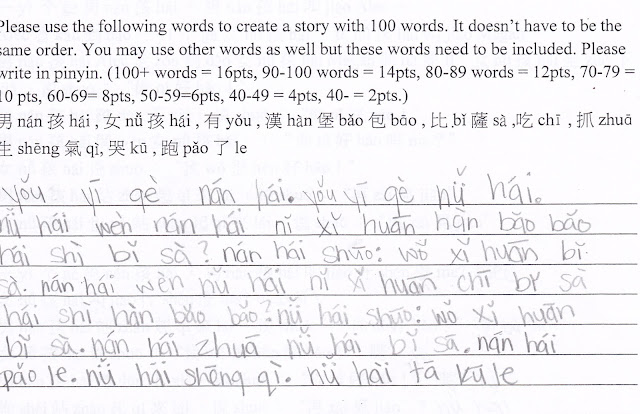 Please use the following words to create a story with 100 words. It doesn't have to be the
same order. You may use other words as well but these words need to be included. Please
write in pinyin. (100+ words = 16pts, 90-100 words = 14pts, 80-89 words = 12pts, 70-79 =
10 pts, 60-69= 8pts, 50-59=6pts, 40-49 = 4pts, 40- = 2pts.)
男 nán 孩 hái , 女 nǚ 孩 hái , 有 yǒu , 漢 hàn 堡 bǎo 包 bāo , 比 bǐ 薩 sà ,吃 chī , 抓 zhuā
生 shēng 氣 qì, 哭 kū , 跑 pǎo 了 le
yǒu yī ge nán hái. yǒu yī gè nǚ hái.
nǚ hái wèn nán hái nǐ xǐ huān hàn bǎo bāo
hái shì bǐ sà? nán hái shuō: wǒ xǐ huān bǐ
sà. nán hái wèn nǚ hái nǐ xǐ huān chī bǐ sà
hái shì hàn bǎo bāo? nǚ hái shuō: wǒ xǐ huān
bǐ sà. nán hái zhuā nǚ hái bǐ sà. nán hái
pǎo le. nǚ hái shēng qì. nǚ hài tā kū le